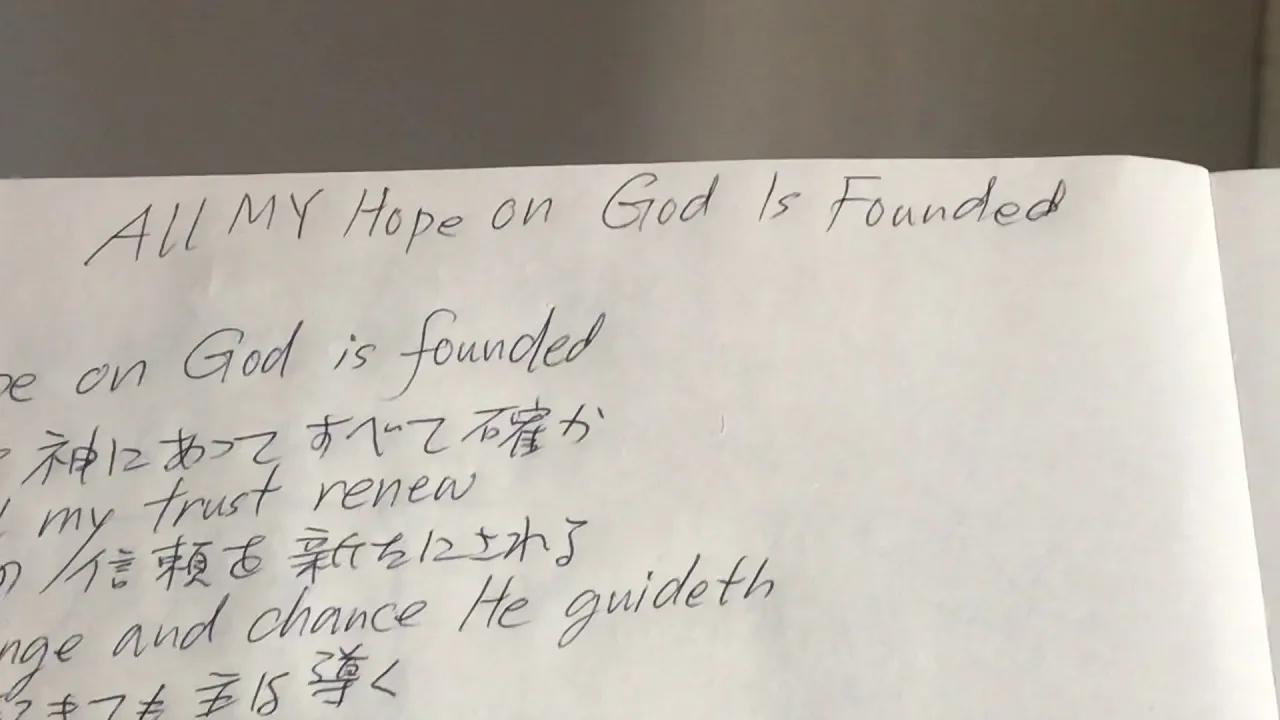 All MY Hope on God Is Founded
on God is founded
神にあって すべて 確か
my trust renew
信頼を 新たにされる
and chance He guideth
きても 主は 導く